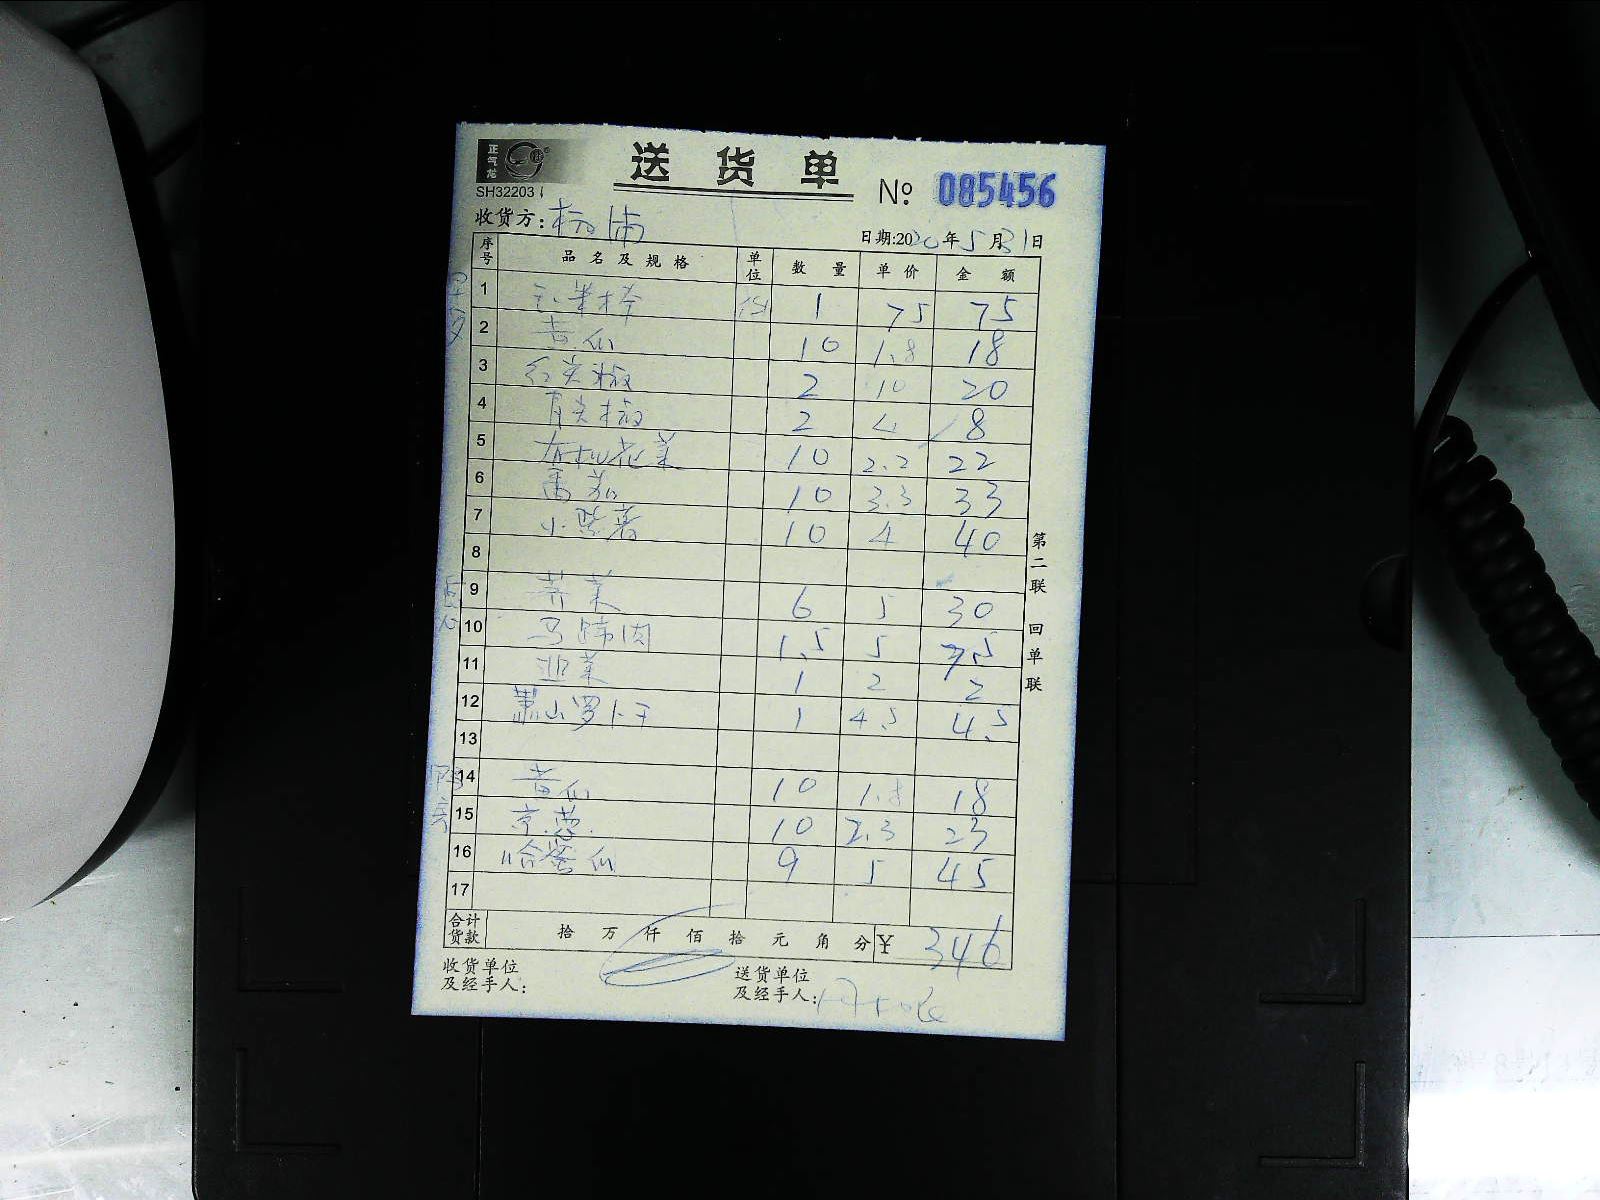 正气龙
送货单
№ 085456
SH32203
收货方: 杨涛
日期:2020年5月31日
序号 品名及规格 单位 数量 单价 金额
1 玉米棒 袋 1 75 75
2 黄瓜 10 1.8 18
3 红尖椒 2 10 20
4 青尖椒 2 4 8
5 有机花菜 10 2.2 22
6 番茄 10 3.3 33
7 小紫薯 10 4 40
8
9 荠菜 6 5 30
10 马蹄肉 1.5 5 7.5
11 韭菜 1 2 2
12 萧山罗卜干 1 4.5 4.5
13
14 黄瓜 10 1.8 18
15 京葱 10 2.3 23
16 哈蜜瓜 9 5 45
17
合计货款 拾 万 仟 佰 拾 元 角 分 ¥ 346
收货单位及经手人:
送货单位及经手人:
第二联 回单联